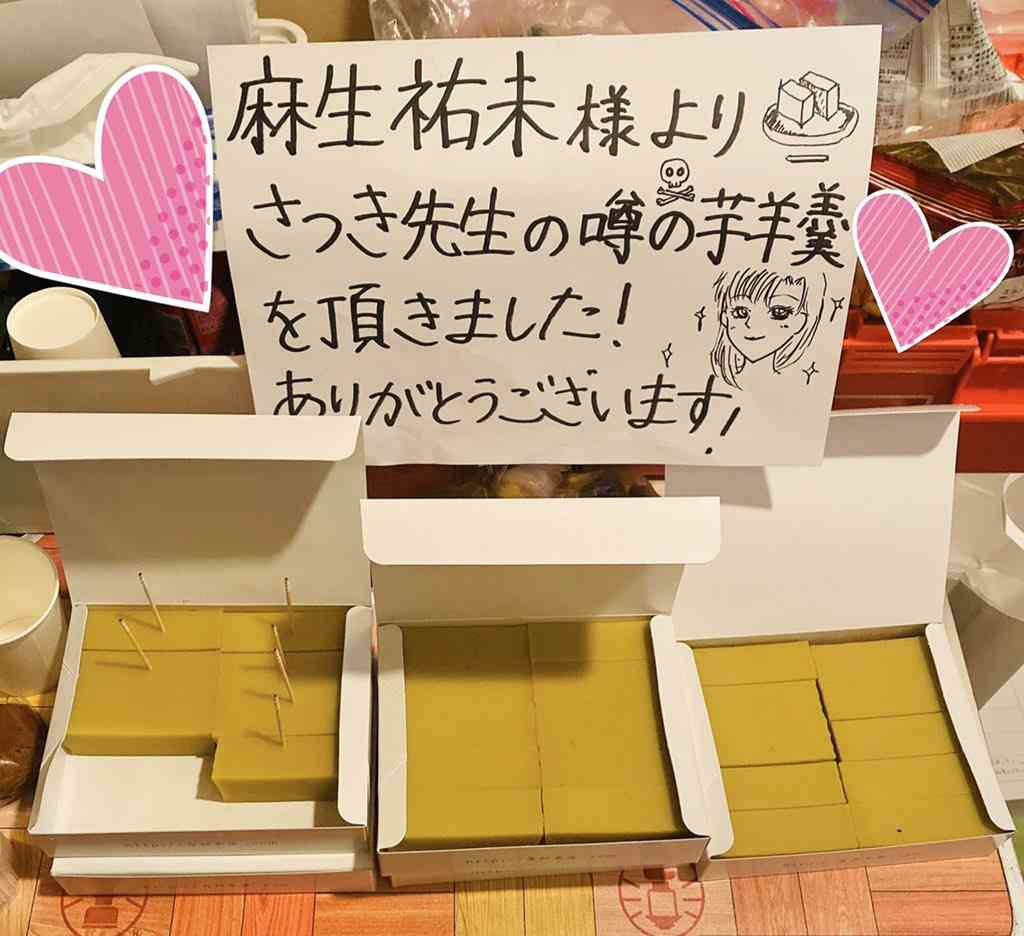 麻生祐未様より
さつき先生の噂の芋羊羹
を頂きました！
ありがとうございます！